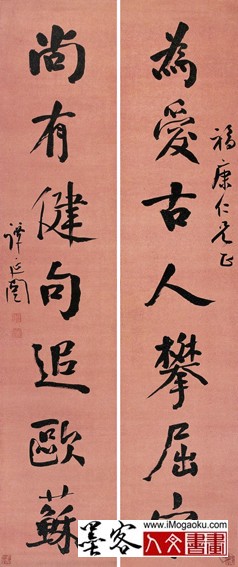 福康仁兄正
為愛古人攀屈宋
尚有健句追歐蘇
譚延闓
墨客
www.iMogaoku.com
人文書畫